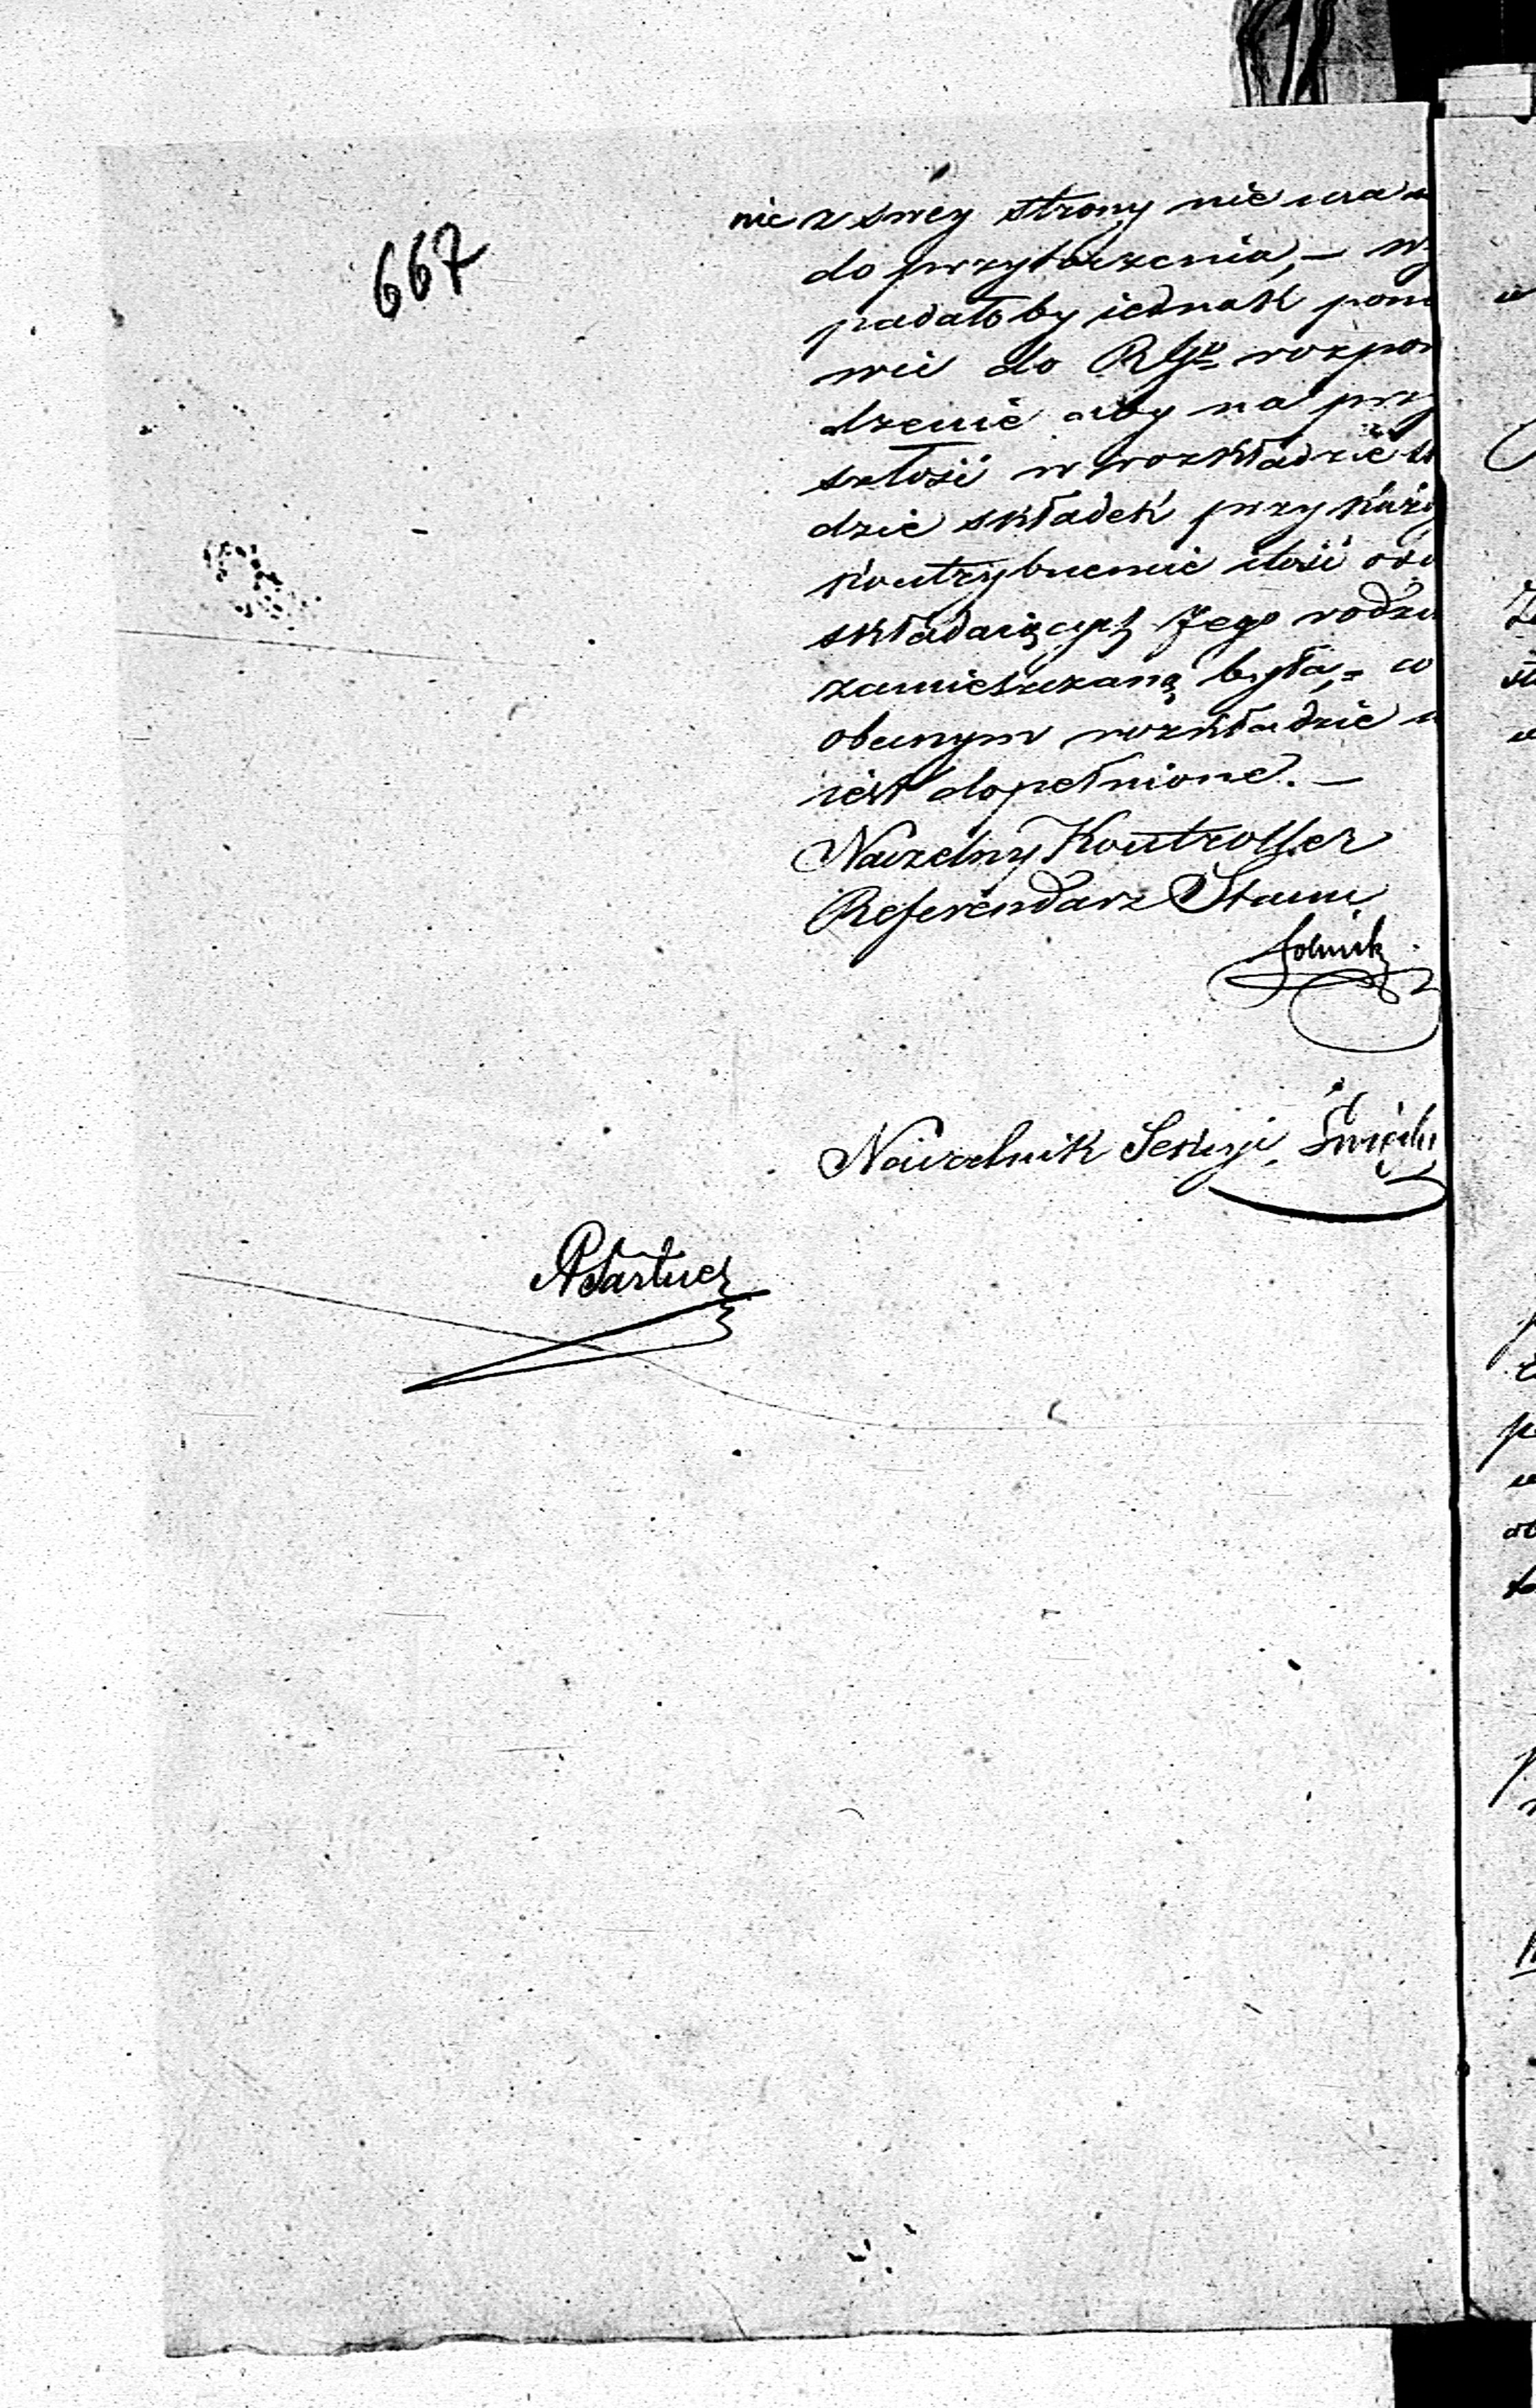 667
nic z swey strony nie ma
do przytoczenia, — wy
padałoby iednak pono
wić do RGo rozpor
dzenie aby na przy
szłość w rozkładzie
dzie składek przy każd
kontrybuencie ilość osó
składaiących Jego rodzi
zamieszczaną była, = co
obecnym rozkładzie n
iest dopełnione. —
Naczelny Kontroller
Referendarz Stanu
Naczelnik Sekcyi,